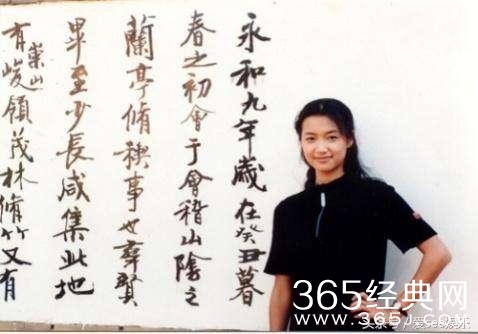 永和九年歲在癸丑暮
春之初會于會稽山陰之
蘭亭脩稧事也羣賢
畢至少長咸集此地
有崇山峻領茂林脩竹又有
365经典网
www.365J.com